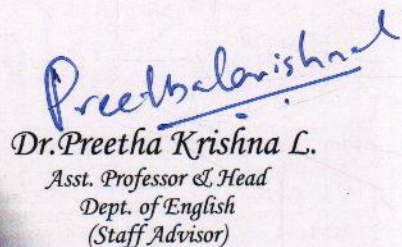 Preethakrishnal
Dr.Preetha Krishna L.
Asst. Professor & Head
Dept. of English
(Staff Advisor)